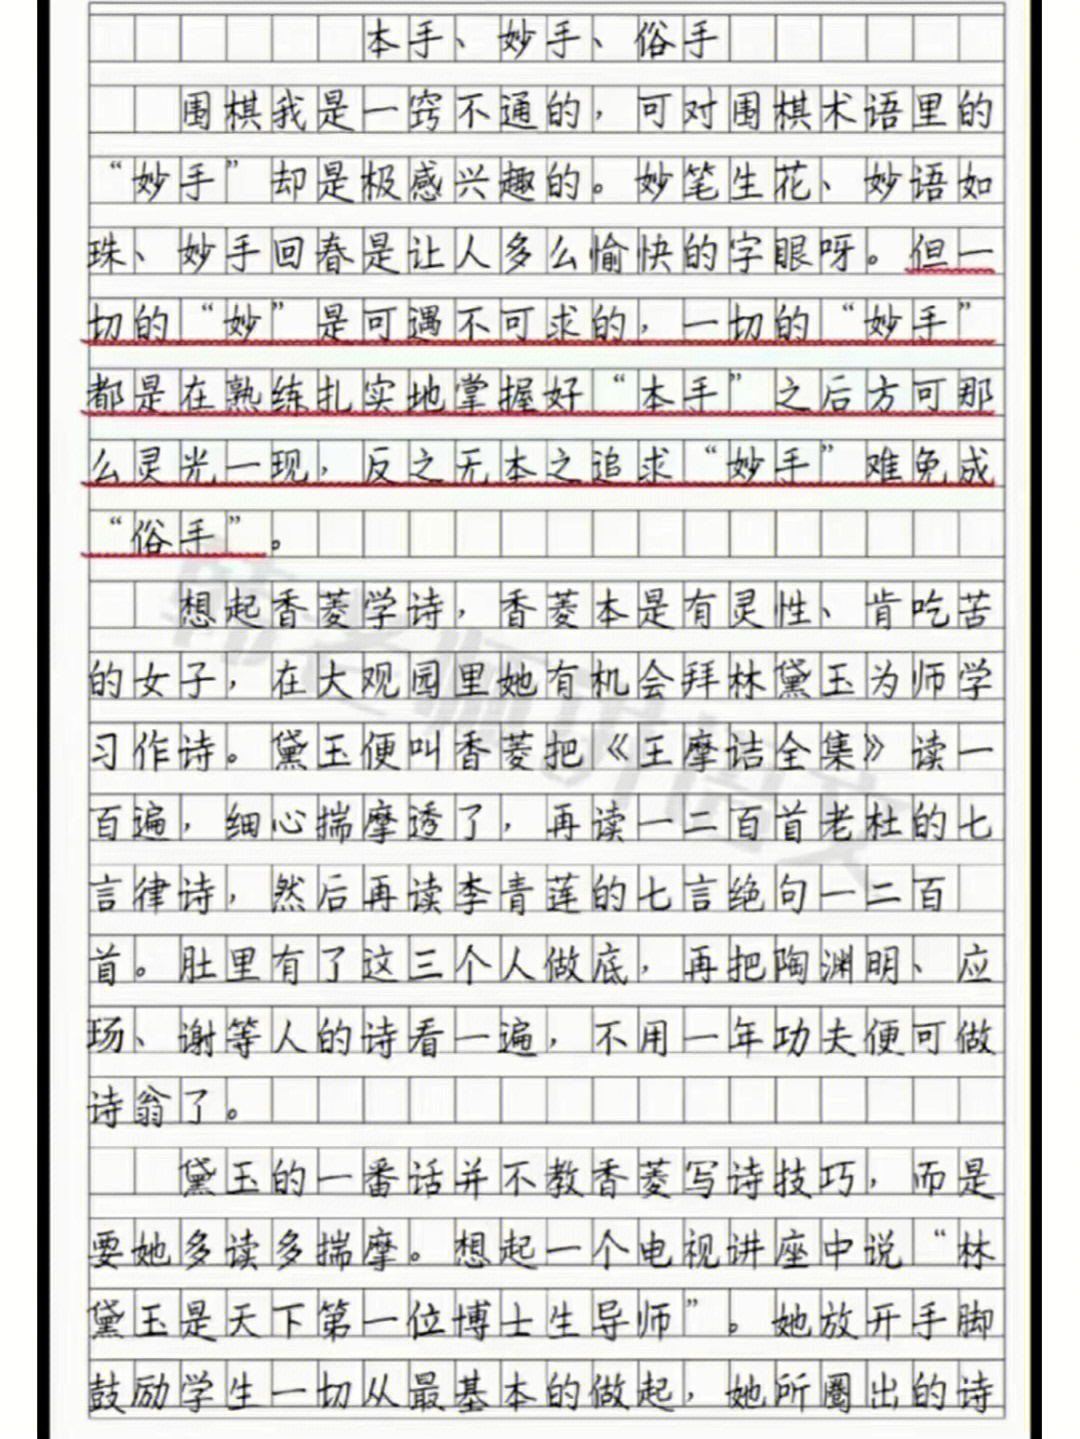 本手、妙手、俗手
围棋我是一窍不通的，可对围棋术语里的
“妙手”却是极感兴趣的。妙笔生花、妙语如
珠、妙手回春是让人多么愉快的字眼呀。但一
切的“妙”是可遇不可求的，一切的“妙手”
都是在熟练扎实地掌握好“本手”之后方可那
么灵光一现，反之无本之追求“妙手”难免成
“俗手”。
想起香菱学诗，香菱本是有灵性、肯吃苦
的女子，在大观园里她有机会拜林黛玉为师学
习作诗。黛玉便叫香菱把《王摩诘全集》读一
百遍，细心揣摩透了，再读一二百首老杜的七
言律诗，然后再读李青莲的七言绝句一二百
首。肚里有了这三个人做底，再把陶渊明、应
玚、谢等人的诗看一遍，不用一年功夫便可做
诗翁了。
黛玉的一番话并不教香菱写诗技巧，而是
要她多读多揣摩。想起一个电视讲座中说“林
黛玉是天下第一位博士生导师”。她放开手脚
鼓励学生一切从最基本的做起，她所圈出的诗
韩老师讲语文